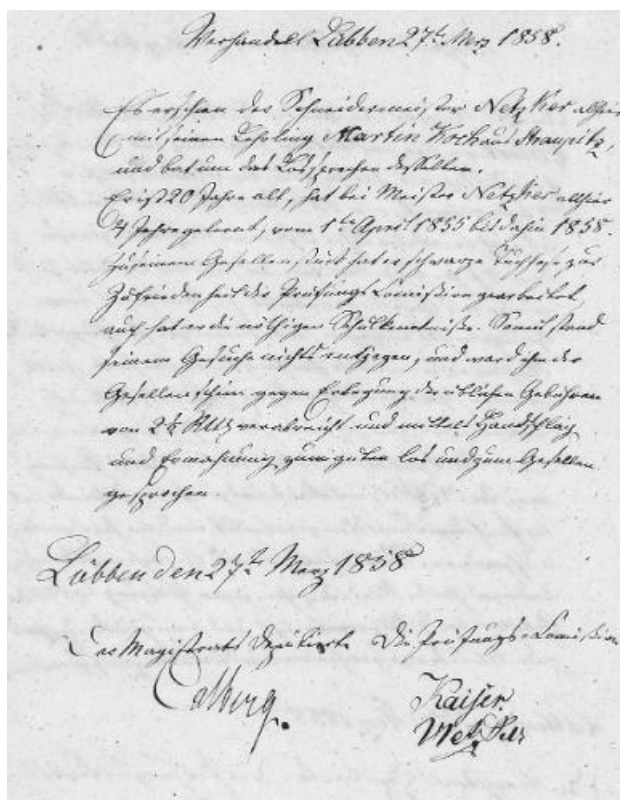 Verhandelt Lübben 27t. Merz 1858.
Es erschien der Schneidermeister Netzker allhier
mit seinem Lehrling Martin Koch aus Straupitz,
und bat um das Lossprechen desselben.
Er ist 20 Jahre alt, hat bei Meister Netzker allhier
Jahre gelernt, vom 1ten April 1855 bis dahin 1858.
Zu seinem Gesellenstück hat er schwarze Tuchhose zur
Zufriedenheit der Prüfungs Comission gearbeitet,
auch hat er die nöthigen Schulkentniße. Somit stand
seinem Gesuche nichts entgegen, und ward ihm der
Gesellenschein gegen Erlegung der üblichen Gebühren
von 2½ verabreicht und mittels Handschlag
und Ermahnung zum guten los und zum Gesellen
gesprochen
Lübben den 27t Merz 1858
Des Magistrats Deputirte Die Prüfungs-Comission
Calberg.
Kaiser
Netzker